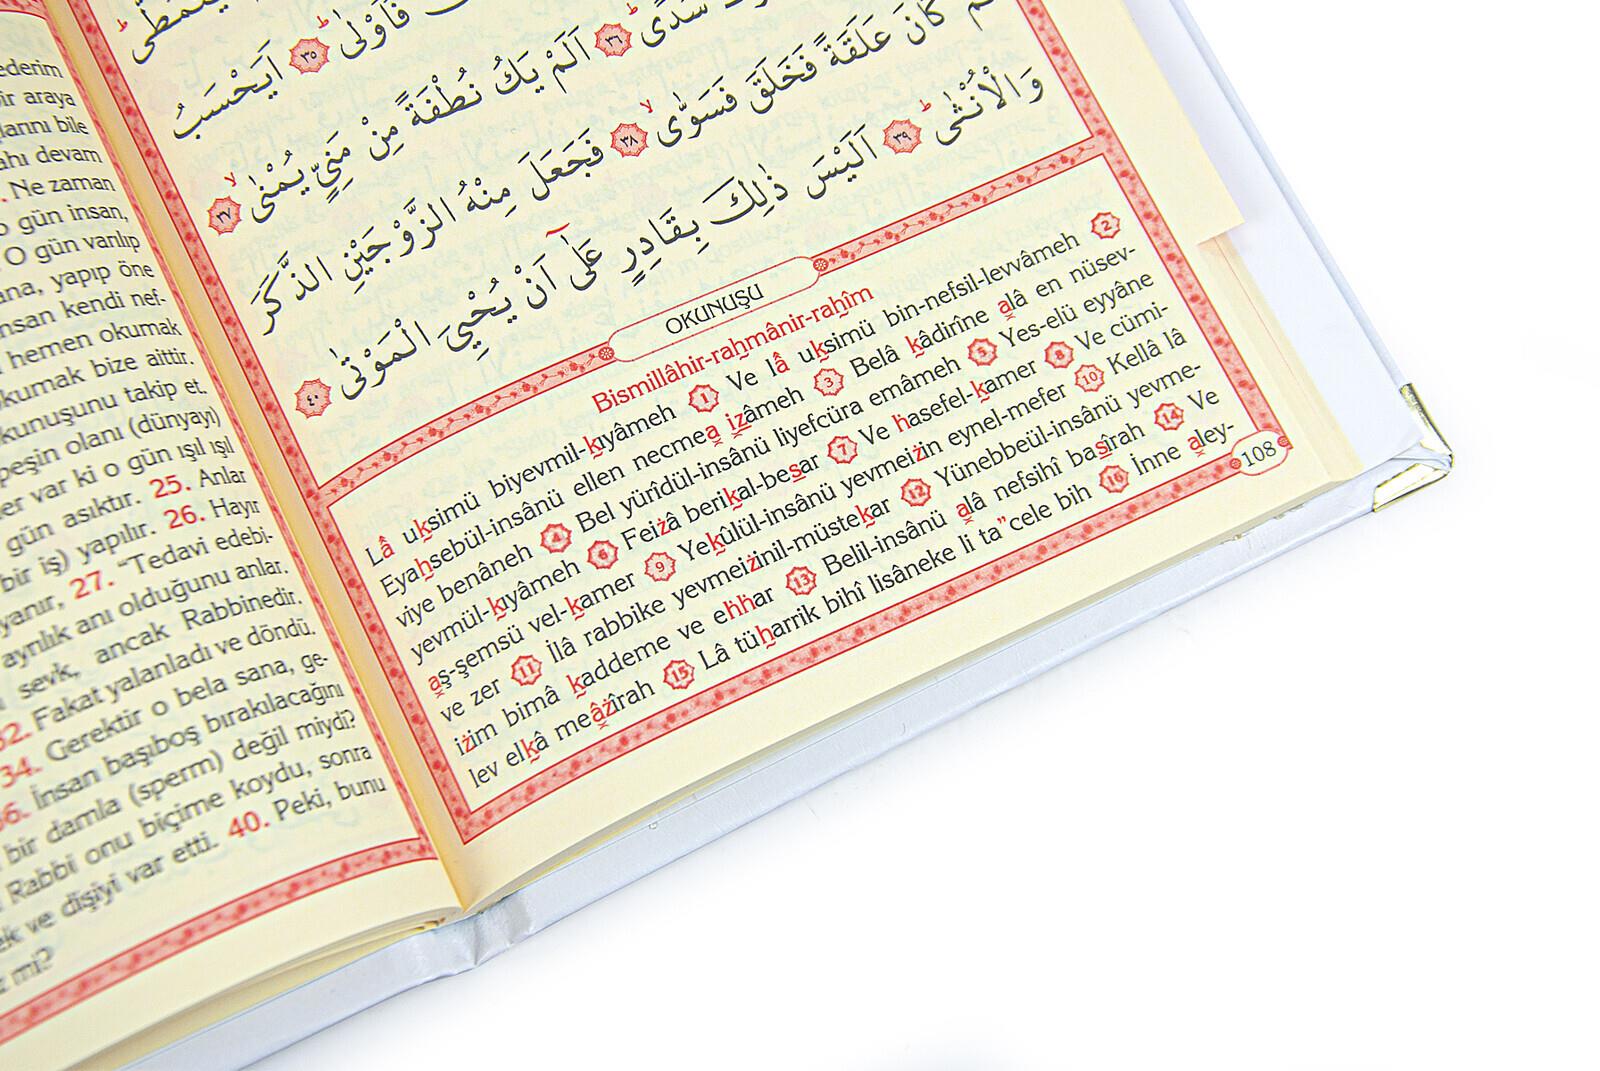 ederim
bir araya
larını bile
ahı devam
. Ne zaman
o gün insan,
O gün varılıp
ana, yapıp öne
nsan kendi nef-
hemen okumak
kumak bize aittir.
kunuşunu takip et.
peşin olanı (dünyayı)
er var ki o gün ışıl ışıl
gün asıktır. 25. Anlar
bir iş) yapılır. 26. Hayır
yanır, 27. “Tedavi edebi-
ayrılık anı olduğunu anlar.
sevk, ancak Rabbinedir.
32. Fakat yalanladı ve döndü.
34. Gerektir o bela sana, ge-
36. İnsan başıboş bırakılacağını
bir damla (sperm) değil miydi?
Rabbi onu biçime koydu, sonra
ek ve dişiyi var etti. 40. Peki, bunu
mi?
فَاَوْلٰى ٣٥ اَيَحْسَبُ
سُدًى ٣٦ اَلَمْ يَكُ نُطْفَةً مِنْ مَنِيٍّ يُمْنٰى ٣٧
كَانَ عَلَقَةً فَخَلَقَ فَسَوّٰى ٣٨ فَجَعَلَ مِنْهُ الزَّوْجَيْنِ الذَّكَرَ
وَالْاُنْثٰى ٣٩ اَلَيْسَ ذٰلِكَ بِقَادِرٍ عَلٰٓى اَنْ يُحْيِيَ الْمَوْتٰى ٤٠
OKUNUŞU
Bismillâhir-rahmânir-rahîm
Lâ uksimü biyevmil-kıyâmeh 1 Ve lâ uksimü bin-nefsil-levvâmeh 2
Eyahsebül-insânü ellen necmea ızâmeh 3 Belâ kâdirîne alâ en nüsev-
viye benâneh 4 Bel yürîdül-insânü liyefcüra emâmeh 5 Yes-elü eyyâne
yevmül-kıyâmeh 6 Feizâ berikal-besar 7 Ve hasefel-kamer 8 Ve cümi-
aş-şemsü vel-kamer 9 Yekûlül-insânü yevmeizin eynel-mefer 10 Kellâ lâ
ve zer 11 İlâ rabbike yevmeizinil-müstekar 12 Yünebbeül-insânü yevme-
izim bimâ kaddeme ve ehhar 13 Belil-insânü alâ nefsihî basîrah 14 Ve
lev elkâ meâzîrah 15 Lâ tüharrik bihî lisâneke li ta”cele bih 16 İnne aley-
108